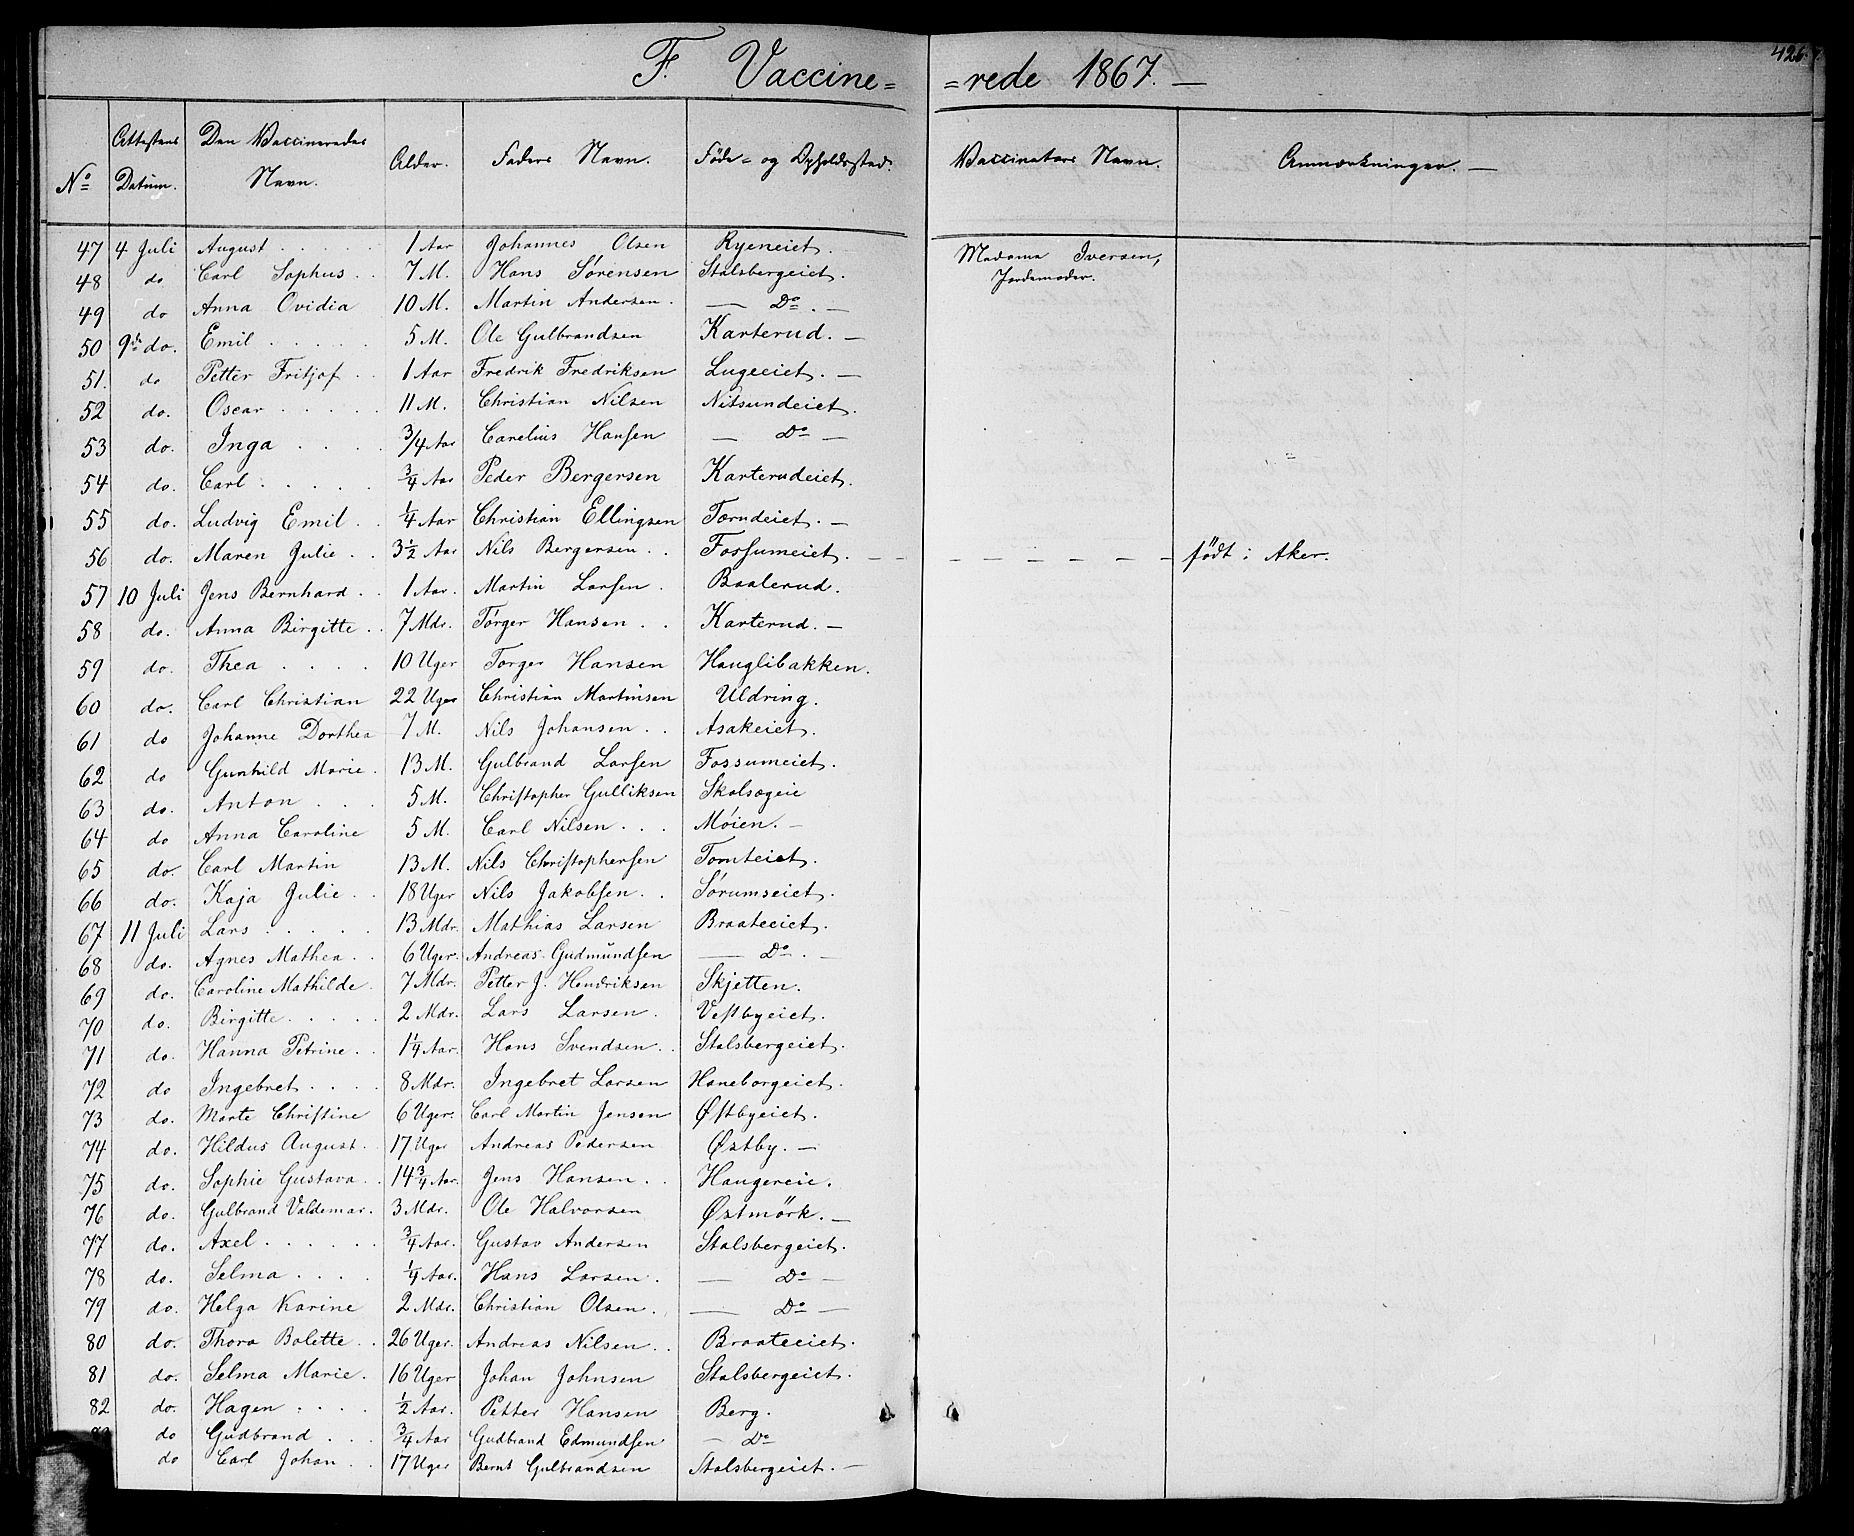 426.
F. Vaccine= =rede 1867. —
No Attestens Datum. Den Vaccineredes Navn. Alder. Faders Navn. Føde- og Opholdssted. Vaccinators Navn. Anmærkninger. —
47 4 Juli August . . . . . 1 Aar Johannes Olsen Ryeneiet. Madame Iversen,
Jordemoder.
48 do Carl Sophus . . 7 M. Hans Sørensen Stalsbergeiet.
49 do Anna Ovidia 10 M. Martin Andersen. — Do. —
50 9de do. Emil . . . . . 5 M. Ole Gulbrandsen Karterud. —
51. do Petter Fritjof . . 1 Aar Fredrik Fredriksen Lugeeiet. —
52 do. Oscar . . . . . 11 M. Christian Nilsen Nitsundeiet.
53 do. Inga . . . . 3/4 Aar Carelius Hansen — Do —
54 do. Carl . . . . . 3/4 Aar Peder Bergersen Karterudeiet.
55 do. Ludvig Emil . . 1/4 Aar Christian Ellingsen Torndeiet. —
56 do. Maren Julie . . 3 1/2 Aar Nils Bergersen . . Fossumeiet. — — — — — — — født i Aker.
57 10 Juli Jens Bernhard . . 1 Aar. Martin Larsen . Baalerud.
58 do. Anna Birgitte . . 7 Mdr. Tørger Hansen . . Karterud. —
59 do. Thea . . . . 10 Uger Torger Hansen Hauglibakken.
60 do. Carl Christian 22 Uger Christian Martinsen Uldring.
61 do Johanne Dorthea 7 M. Nils Johansen . . Asakeiet.
62 do Gunhild Marie . 13 M. Gulbrand Larsen Fossumeiet.
63 do. Anton . . . 5 M. Christopher Gulliksen Skolsægeie
64 do Anna Caroline 5 M. Carl Nilsen . . . Møien. —
65 do. Carl Martin 13 M. Nils Christophersen Tomteiet.
66 do. Kaja Julie . . 18 Uger Nils Jakobsen . . Sørumseiet.
67 11 Juli Lars . . . . . 13 Mdr. Mathias Larsen Braateeiet.
68 do. Agnes Mathea . . 6 Uger. Andreas Gudmundsen — Do. —
69 do. Caroline Mathilde . 7 Mdr. Petter J. Hendriksen Skjetten.
70 do. Birgitte . . . . 2 Mdr. Lars Larsen . Vestbyeiet.
71 do. Hanna Petrine . . 1 1/4 Aar. Hans Svendsen . . Stalsbergeiet.
72 do Ingebret . . . . 8 Mdr. Ingebret Larsen Haneborgeiet.
73 do. Marte Christine 6 Uger. Carl Martin Jensen Østbyeiet.
74 do. Hildus August . 17 Uger Andreas Pedersen Østby. —
75 do. Sophie Gustava . . 14 3/4 Aar. Jens Hansen . . Haugereie.
76 do. Gulbrand Valdemar . 3 Mdr. Ole Halvorsen Østmörk. —
77 do. Axel . . . . . . 3/4 Aar. Gustav Andersen Stalsbergeiet.
78 do. Selma . . . . 1/4 Aar. Hans Larsen . — Do —
79 do. Helga Karine 2 Mdr. Christian Olsen . — Do —
80 do. Thora Bolette . . 26 Uger. Andreas Nilsen . . Braateeiet.
81 do. Selma Marie . 16 Uger Johan Johnsen Stalsbergeiet.
82 do. Hagen . . . . 1/2 Aar. Petter Hansen Berg.
do Gudbrand . . . 3/4 Aar Gudbrand Edmundsen — Do
do Carl Johan . . 17 Uger Bernt Gulbrandsen Stalsbergeiet. —